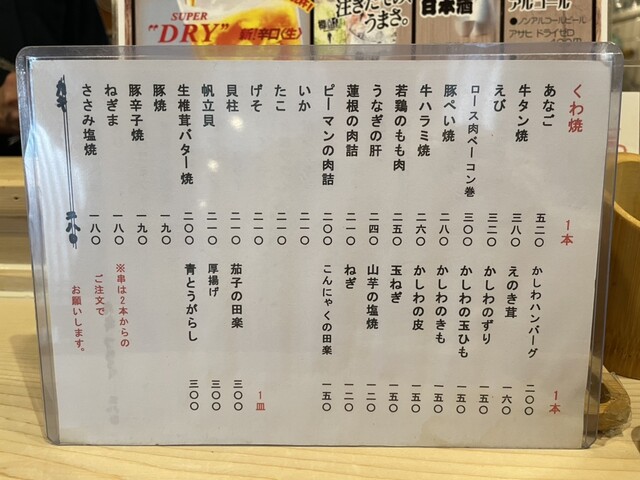 SUPER
"DRY"
新!辛口〈生〉
うまさ。
日本酒
アルコール
●ノンアルコールビール
アサヒ ドライゼロ
くわ焼 1本
あなご 五二〇
牛タン焼 三八〇
えび 三二〇
ロース肉ベーコン巻 三〇〇
豚ぺい焼 二八〇
牛ハラミ焼 二六〇
若鶏のもも肉 二五〇
うなぎの肝 二四〇
蓮根の肉詰 二一〇
ピーマンの肉詰 二〇〇
いか 二一〇
たこ 二一〇
げそ 二一〇
貝柱 二一〇
帆立貝 二一〇
生椎茸バター焼 二〇〇
豚焼 一九〇
豚辛子焼 一九〇
ねぎま 一八〇
ささみ塩焼 一八〇
二八〇
1本
かしわハンバーグ 二〇〇
えのき茸 一六〇
かしわのずり 一五〇
かしわの玉ひも 一五〇
かしわのきも 一五〇
かしわの皮 一五〇
玉ねぎ 一五〇
山芋の塩焼 一二〇
ねぎ 一二〇
こんにゃくの田楽 一五〇
1皿
茄子の田楽 三〇〇
厚揚げ 三〇〇
青とうがらし 三〇〇
※串は2本からの
ご注文で
お願いします。